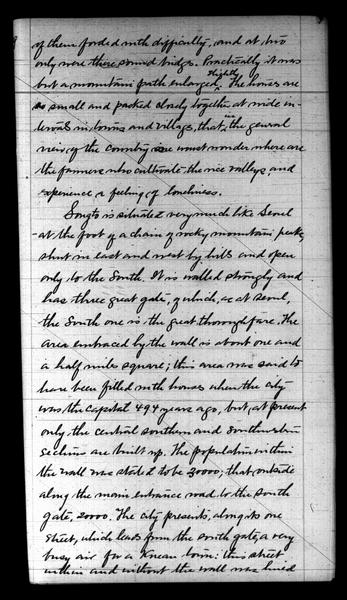 of them forded with difficulty, and at two
only were there sound bridges. Practically it was
but a mountain path enlarged slightly. The houses are
so small and packed closely together at wide in-
tervals in towns and villages, that, in the general
view of the country one must wonder where are
the farmers who cultivate the rice valleys, and
experience a feeling of loneliness.
Songto is situated very much like Seoul
- at the foot of a chain of rocky mountain peaks,
shut in east and west by hills and open
only to the South. It is walled strongly and
has three great gates, of which, as at Seoul,
the South one is the great thoroughfare. The
area embraced by the wall is about one and
a half miles square; this area was said to
have been filled with houses when the city
was the capital 494 years ago, but, at present
only the central southern and southwestern
sections are built up. The population within
the wall was stated to be 30000; that outside
along the main entrance road to the south
gate, 20000. The city presents, along its one
street, which leads from the south gate, a very
busy air for a Korean town: this street
within and without the wall was lined